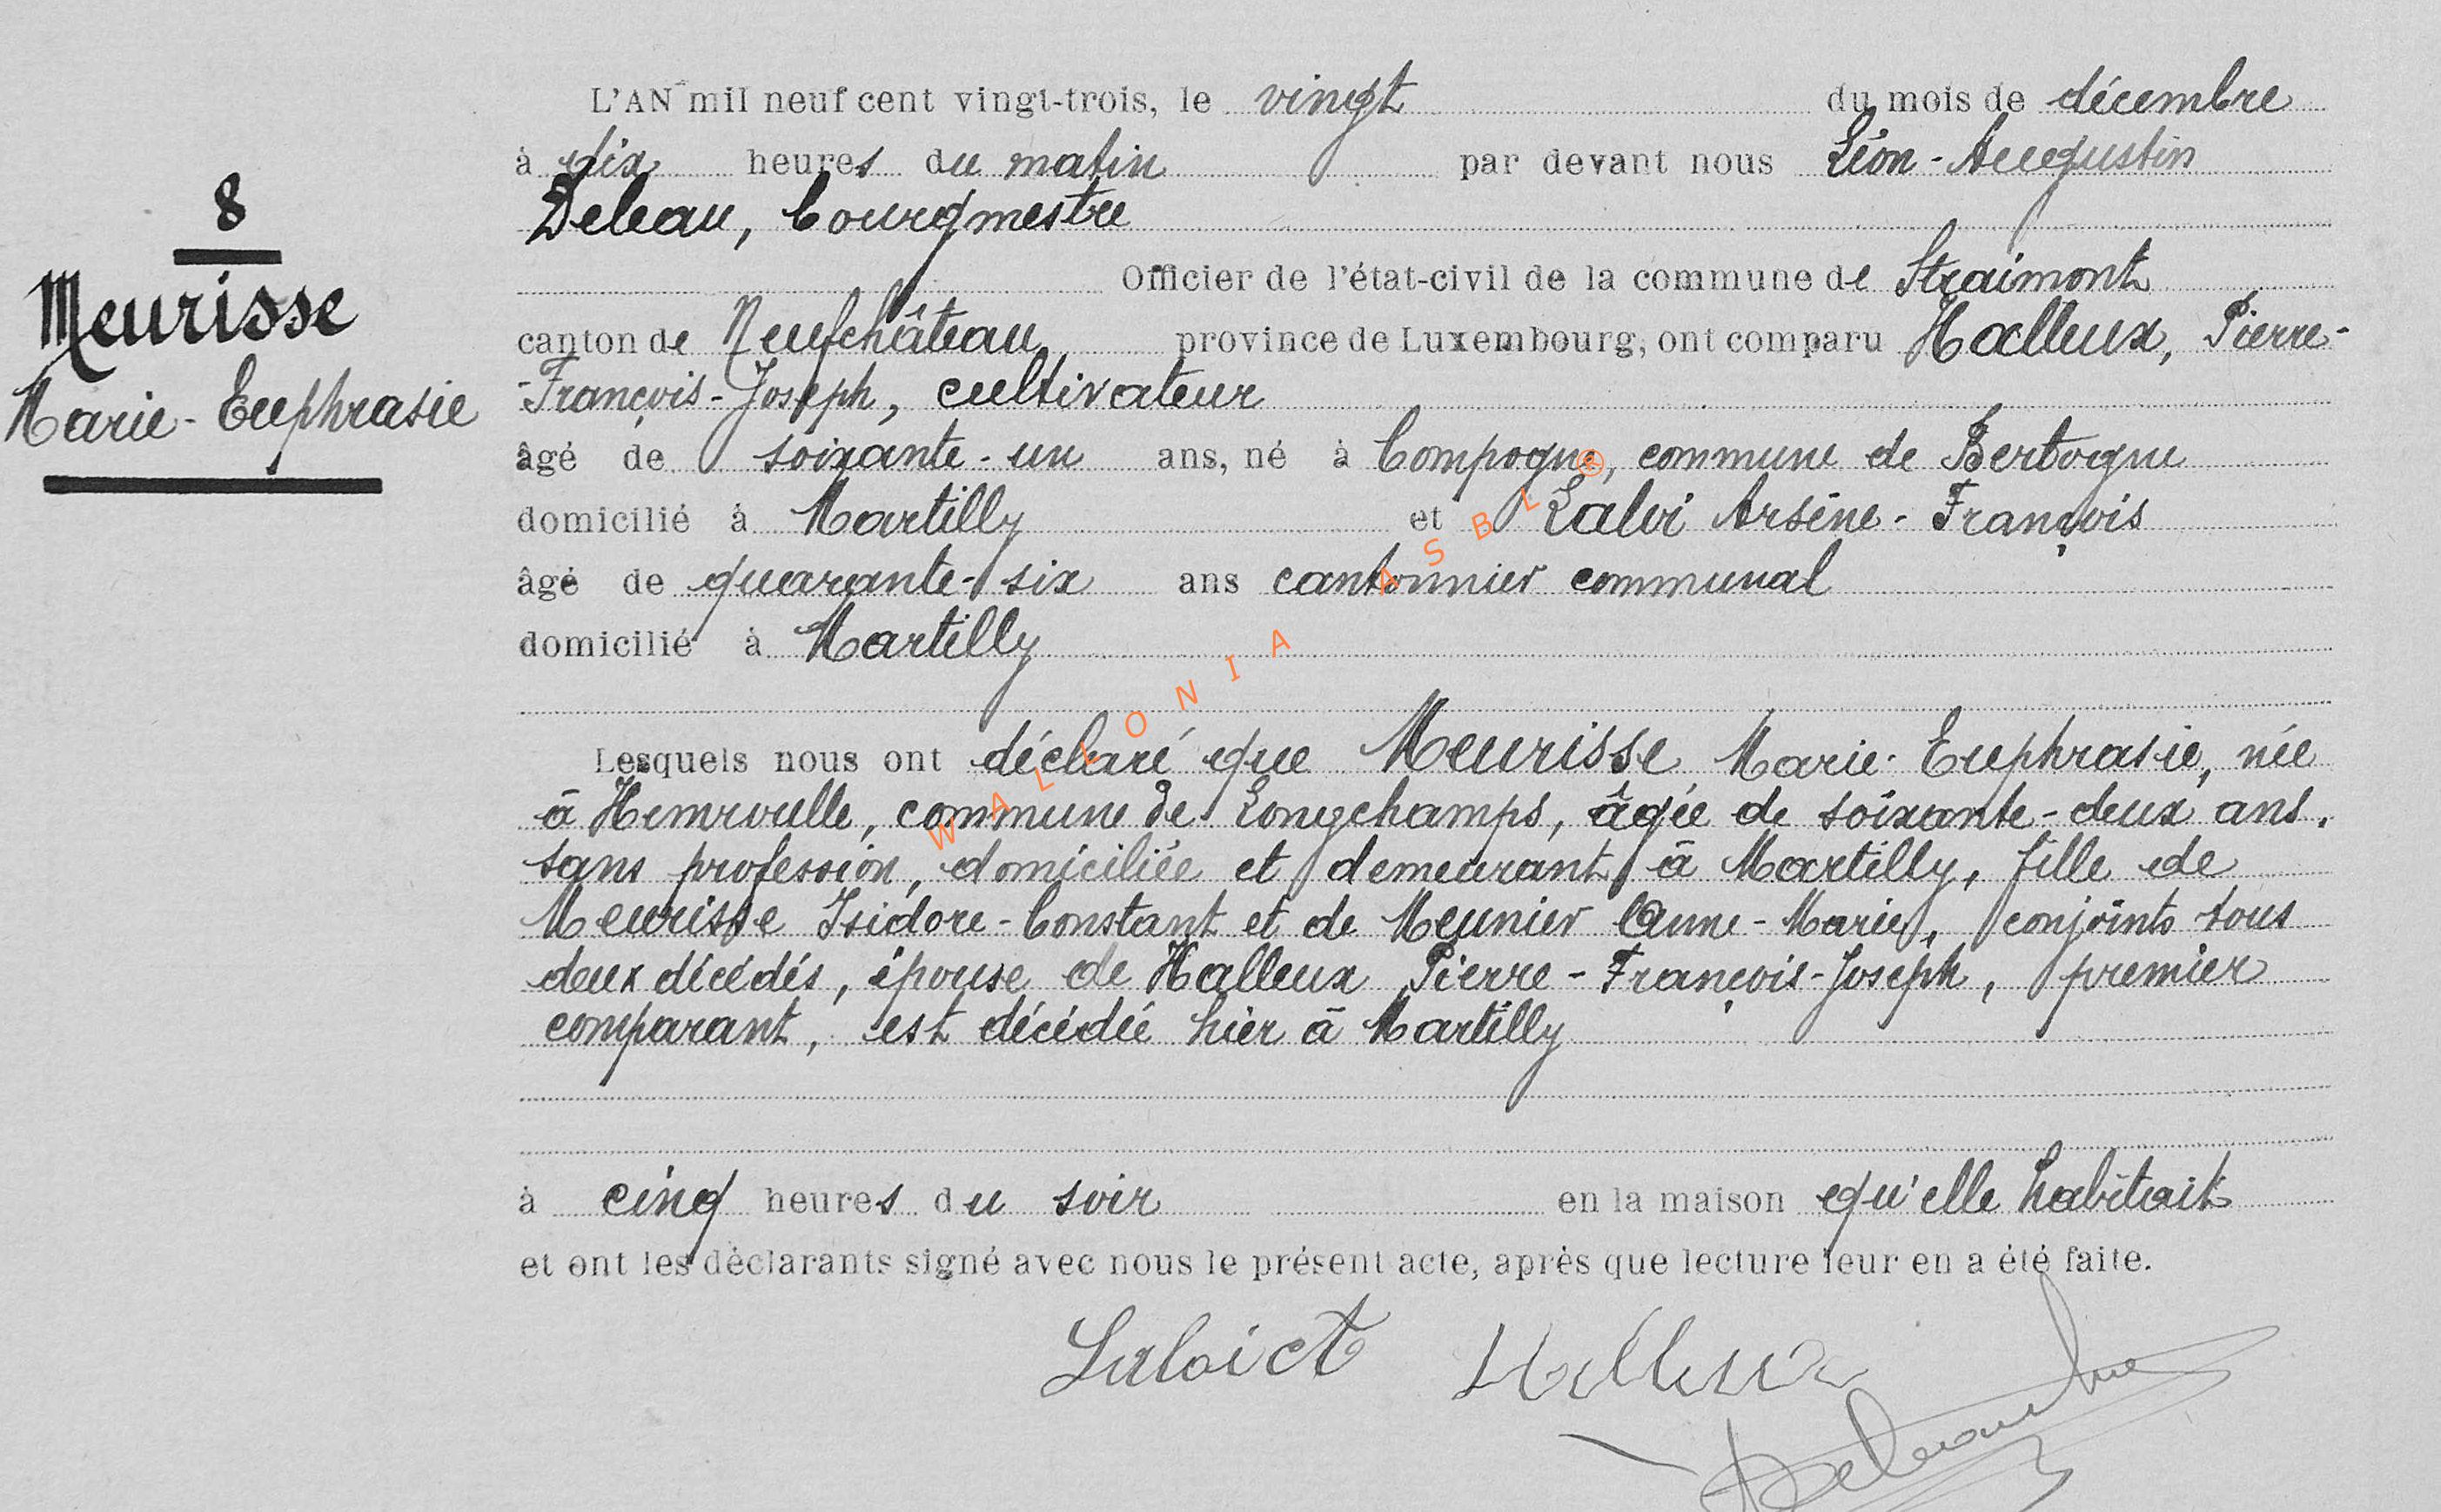 8
Meurisse
Marie-Euphrasie
L'AN mil neuf cent vingt-trois, le vingt du mois de décembre
à dix heures du matin par devant nous Léon-Augustin
Deleau, bourgmestre
Officier de l'état-civil de la commune de Straimont
canton de Neufchâteau province de Luxembourg, ont comparu Halleux, Pierre-
-François-Joseph, cultivateur
âgé de soixante-un ans, né à Compogne, commune de Bertogne
domicilié à Martilly et Laloi Arsène-François
âgé de quarante-six ans cantonnier communal
domicilié à Martilly
Lesquels nous ont déclaré que Meurisse Marie-Euphrasie, née
à Hemroulle, commune de Longchamps, âgée de soixante-deux ans,
sans profession, domiciliée et demeurant à Martilly, fille de
Meurisse Isidore-Constant et de Meunier Anne-Marie, conjoints tous
deux décédés, épouse de Halleux Pierre-François-Joseph, premier
comparant, est décédée hier à Martilly
à cinq heures du soir en la maison qu'elle habitait
et ont les déclarants signé avec nous le présent acte, après que lecture leur en a été faite.
Laloi Halleux
WALLONIA ASBL ®